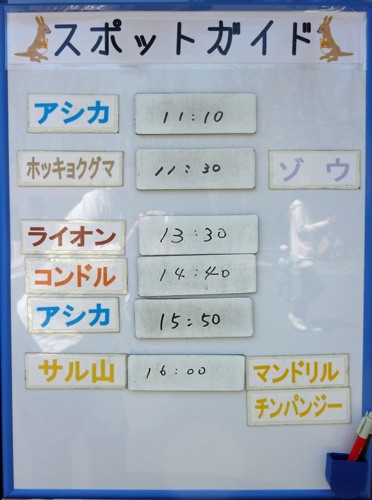 スポットガイド
アシカ 11:10
ホッキョクグマ 11:30 ゾウ
ライオン 13:30
コンドル 14:40
アシカ 15:50
サル山 16:00 マンドリル
チンパンジー